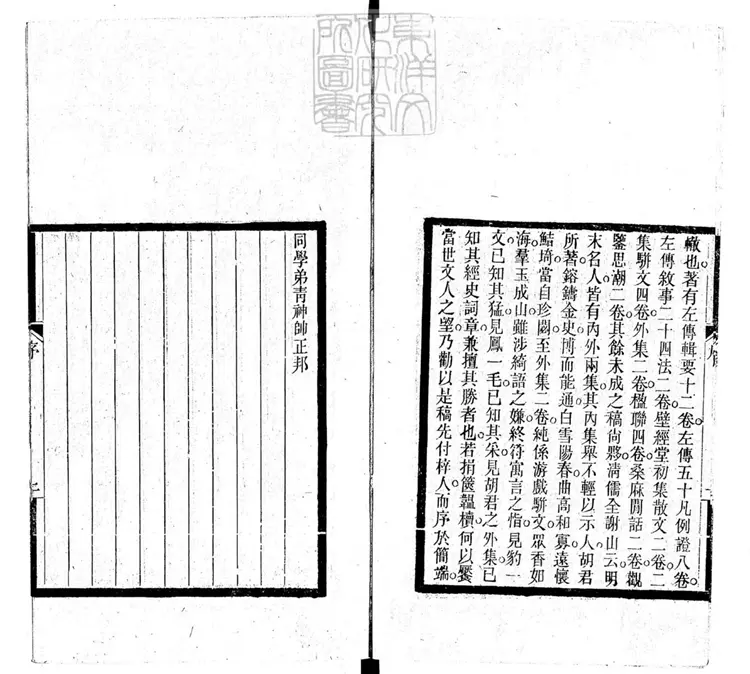 轍也。著有左傳輯要十二卷。左傳五十凡例證八卷。
左傳敘事二十四法二卷。壁經堂初集散文二卷。二
集駢文四卷。外集二卷。楹聯四卷。桑麻閒話二卷。觀
鑒思潮二卷。其餘未成之稿尙夥。淸儒全謝山云。明
末名人。皆有內外兩集。其內集舉不輕以示人。胡君
所著。鎔鑄金史。博而能通。白雪陽春。曲高和寡。遠懷
鮚琦。當自珍閟。至外集二卷。純係游戲駢文。眾香如
海。羣玉成山。雖涉綺語之嫌。終符寓言之恉。見豹一
文。已知其猛。見鳳一毛。已知其采。見胡君之外集。已
知其經史詞章。兼擅其勝者也。若捐篋韞櫝。何以饜
當世文人之望。乃勸以是稿先付梓人。而序於簡端。
同學弟靑神帥正邦
序
東洋文
化研究
所圖書